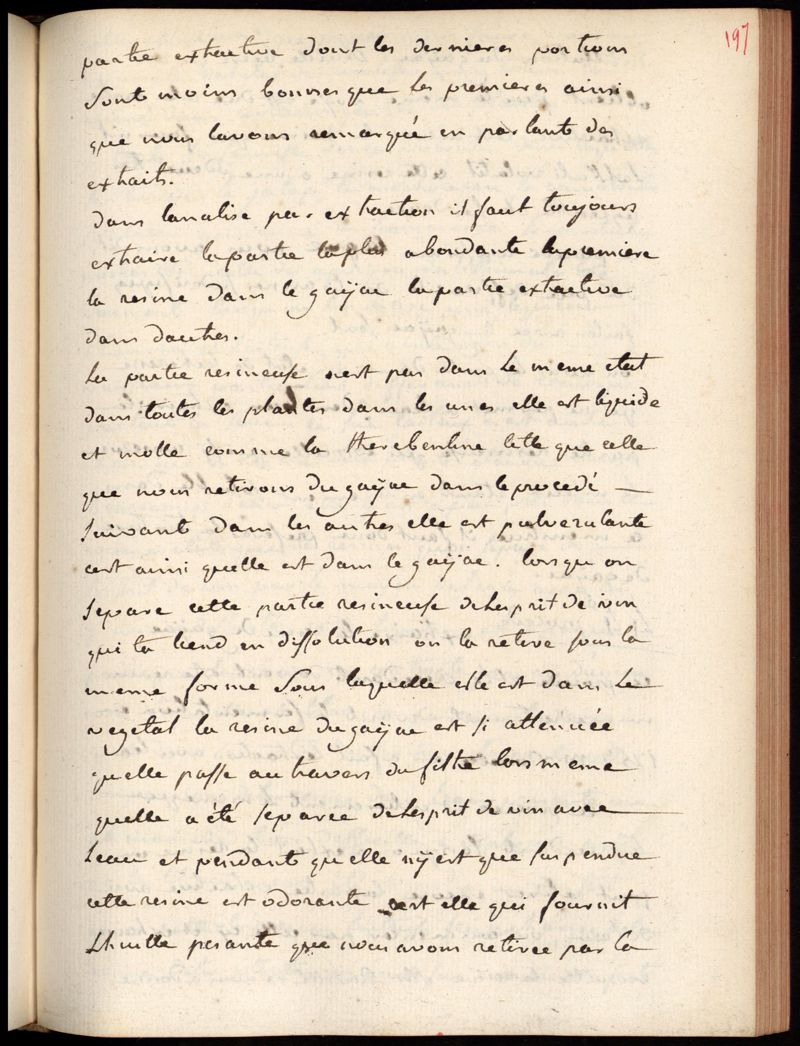 197
partie extractive dont les dernieres portions
Sont moins bonnes que les premieres ainsi
que nous lavons remarqué en parlants des
extraits.
dans lanalise par extraction il faut toujours
extraire la partie la plus abondante la premiere
la resine dans le gaÿac la partie extractive
dans dautres.
La partie resineuse nest pas dans le meme etat
dans toutes les plantes dans les unes elle est liquide
et molle comme la therebentine telle que celle
que nous retirons du gaÿac dans le procedé —
Suivant dans les autres elle est pulverulante
cest ainsi quelle est dans le gaÿac. lorsqu on
Separe cette partie resineuse de Lesprit de vin
qui la tiend en dissolution on la retire sous la
meme forme Sous laquelle elle est dans le
vegetal la resine du gaÿac est si attenuée
quelle passe au travers du filtre lors meme
quelle a été separee de Lesprit de vin avec
Leau et pendants quelle nÿ est que suspendue
cette resine est odorante cest elle qui fournit
Lhuille pesante que nous avons retirée par la